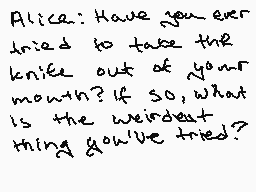 Alice: Have you ever
tried to take the
knife out of your
mouth? If so, what
is the weirdest
thing you've tried?